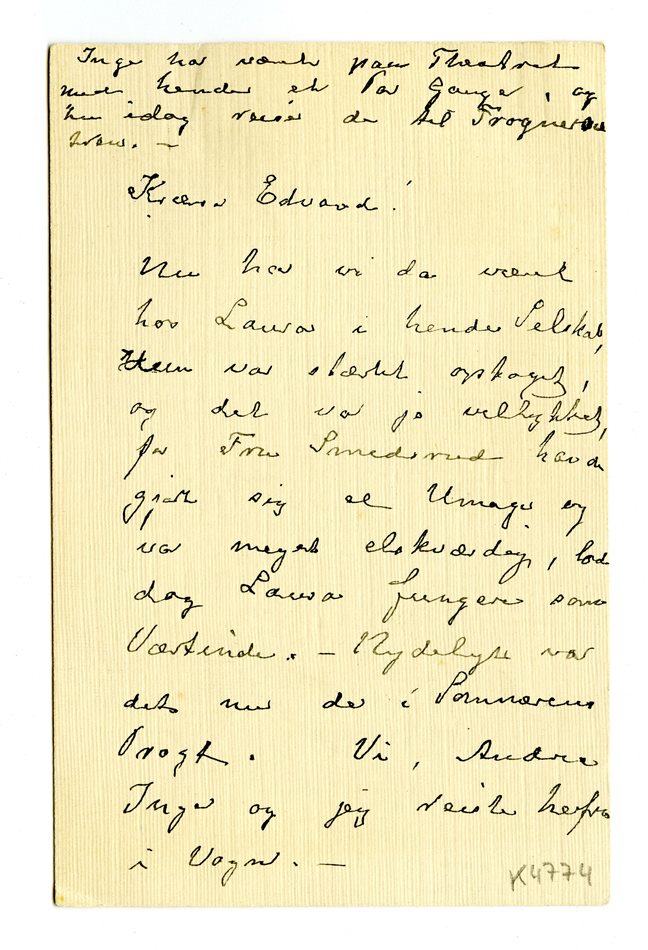 Inger har været paa Theatret
med hende et Par Gange, og
nu idag reiser de til Frogner
Kjære Edvard!
Nu har vi da været
hos Laura i hendes Selskab,
Hun var stærkt optaget,
og det var jo vellykket,
for Fru Smedsrud havde
gjort sig al Umage og
var meget elskværdig, lod
dog Laura fungere som
Værtinde. – Nydeligt var
det nu der i Sommerens
Pragt. Vi, Andrea
Inger og jeg reiste herfra
i Vogn. –
K4774